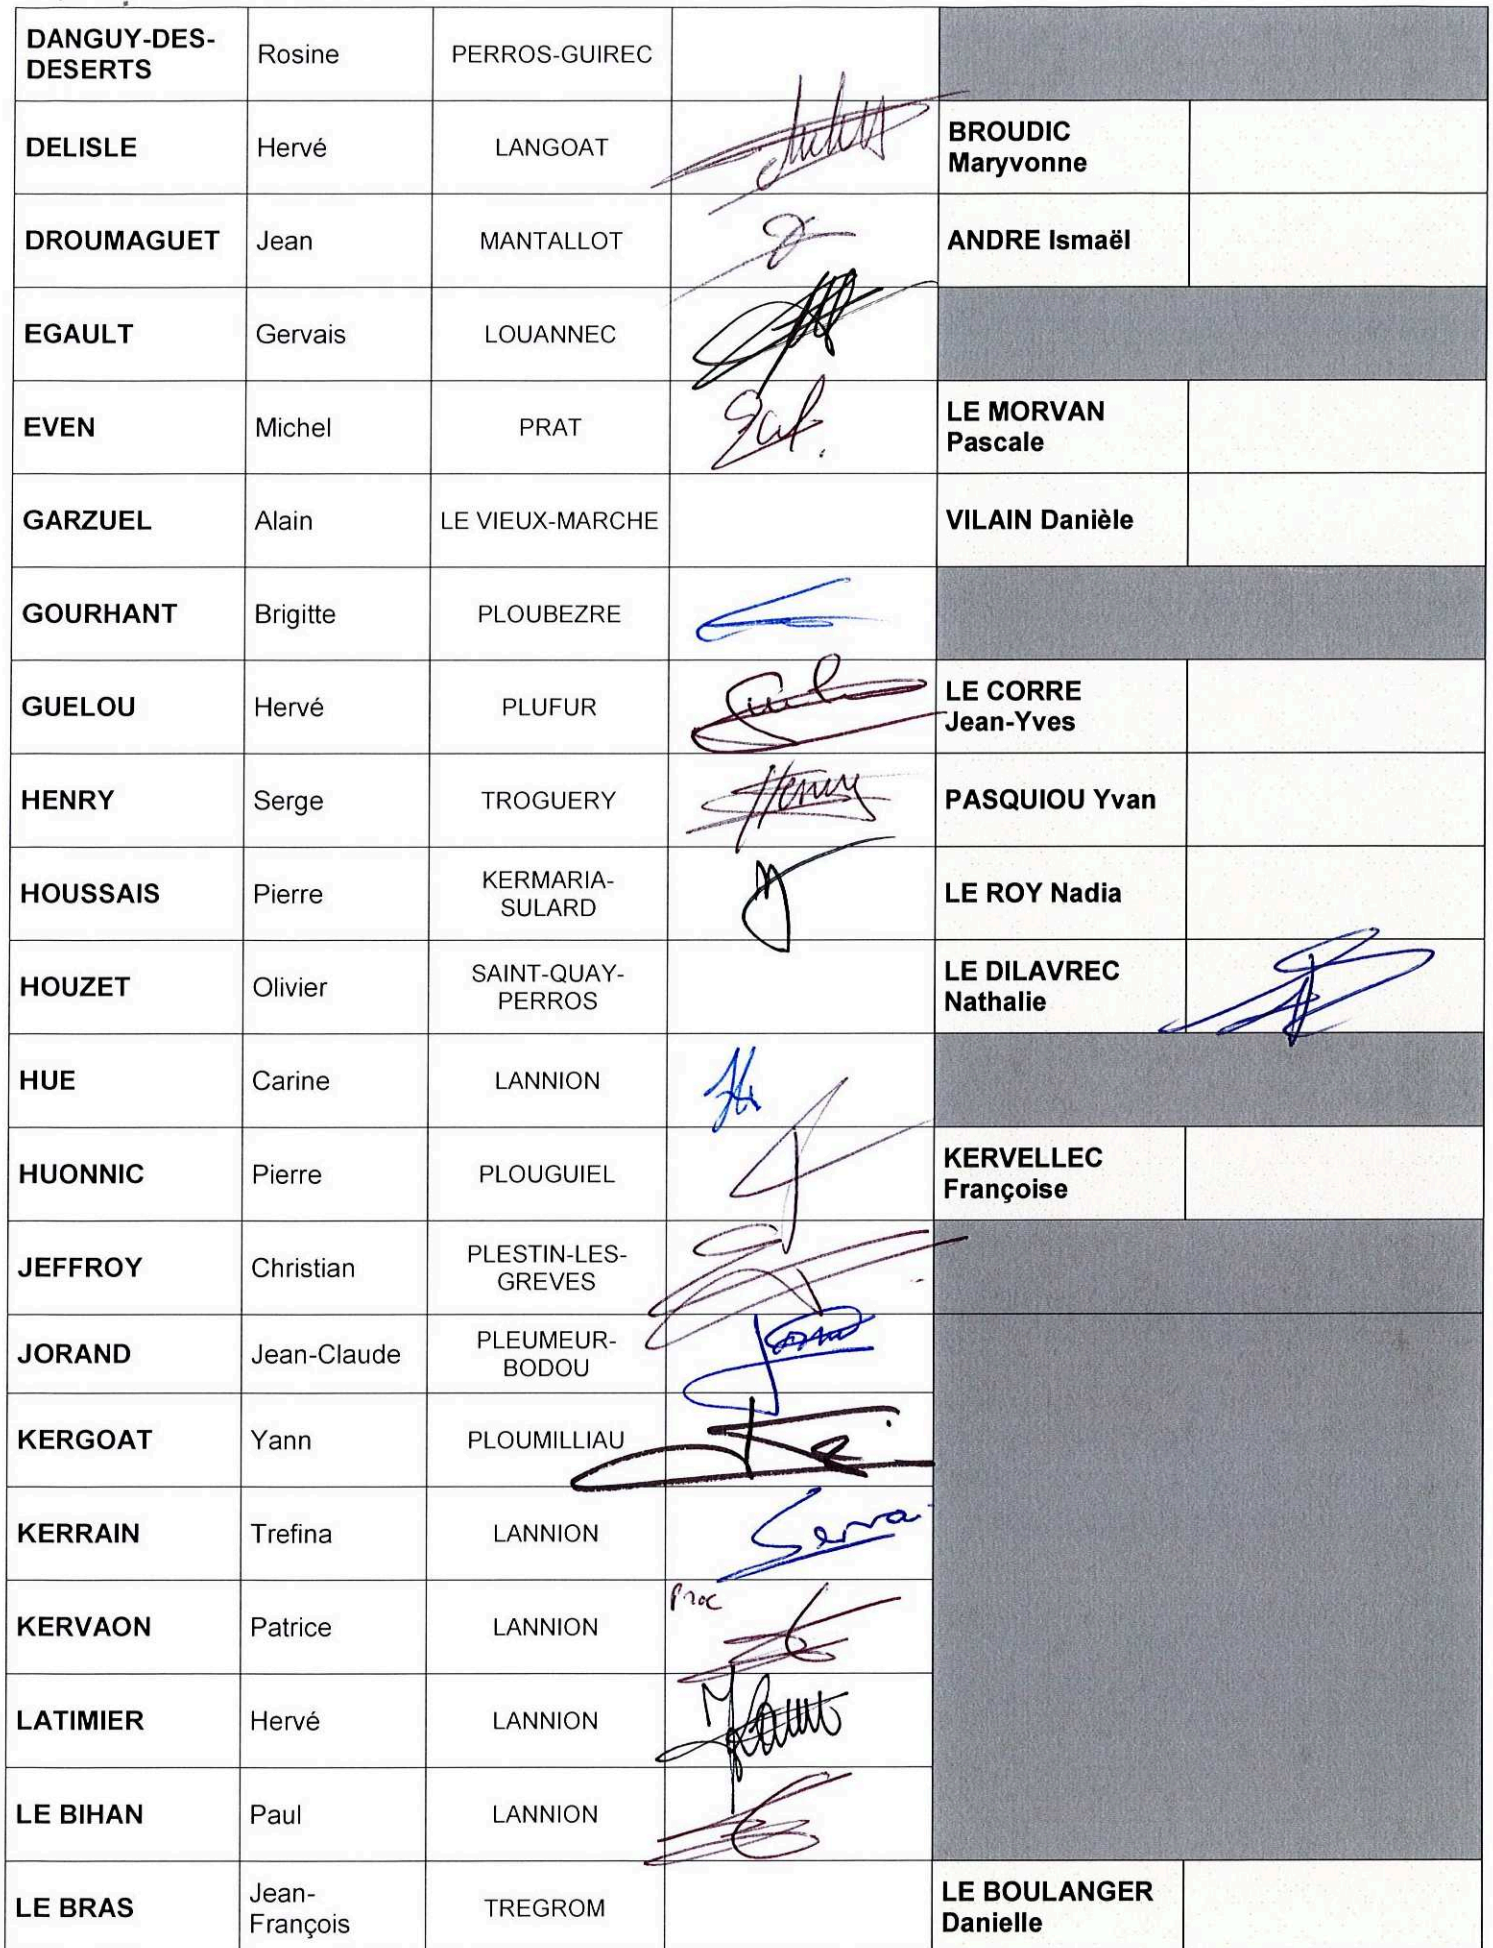 DANGUY-DES-
DESERTS
Rosine
PERROS-GUIREC
DELISLE
Hervé
LANGOAT
BROUDIC
Maryvonne
DROUMAGUET
Jean
MANTALLOT
ANDRE Ismaël
EGAULT
Gervais
LOUANNEC
EVEN
Michel
PRAT
LE MORVAN
Pascale
GARZUEL
Alain
LE VIEUX-MARCHE
VILAIN Danièle
GOURHANT
Brigitte
PLOUBEZRE
GUELOU
Hervé
PLUFUR
LE CORRE
Jean-Yves
HENRY
Serge
TROGUERY
Henry
PASQUIOU Yvan
HOUSSAIS
Pierre
KERMARIA-
SULARD
LE ROY Nadia
HOUZET
Olivier
SAINT-QUAY-
PERROS
LE DILAVREC
Nathalie
HUE
Carine
LANNION
HUONNIC
Pierre
PLOUGUIEL
KERVELLEC
Françoise
JEFFROY
Christian
PLESTIN-LES-
GREVES
JORAND
Jean-Claude
PLEUMEUR-
BODOU
KERGOAT
Yann
PLOUMILLIAU
KERRAIN
Trefina
LANNION
KERVAON
Patrice
LANNION
Proc
LATIMIER
Hervé
LANNION
LE BIHAN
Paul
LANNION
LE BRAS
Jean-
François
TREGROM
LE BOULANGER
Danielle